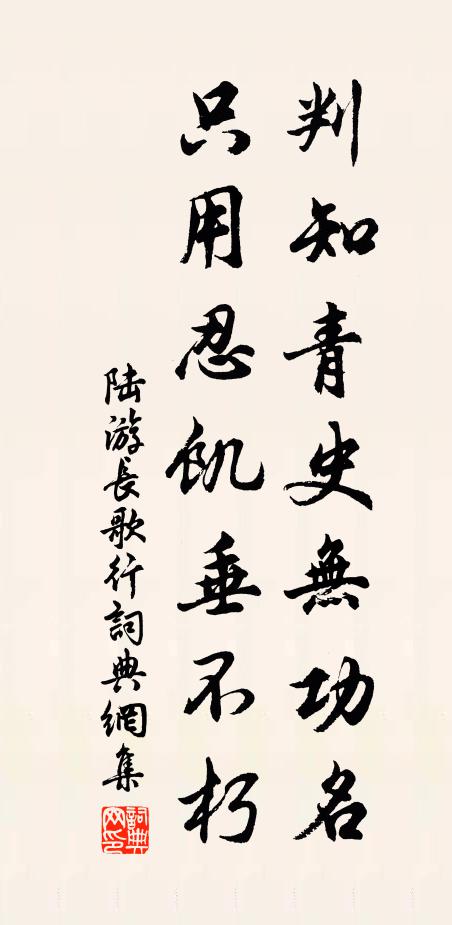 判知青史無功名
只用忍飢垂不朽
陆游長歌行詞典網集
詞典
网印